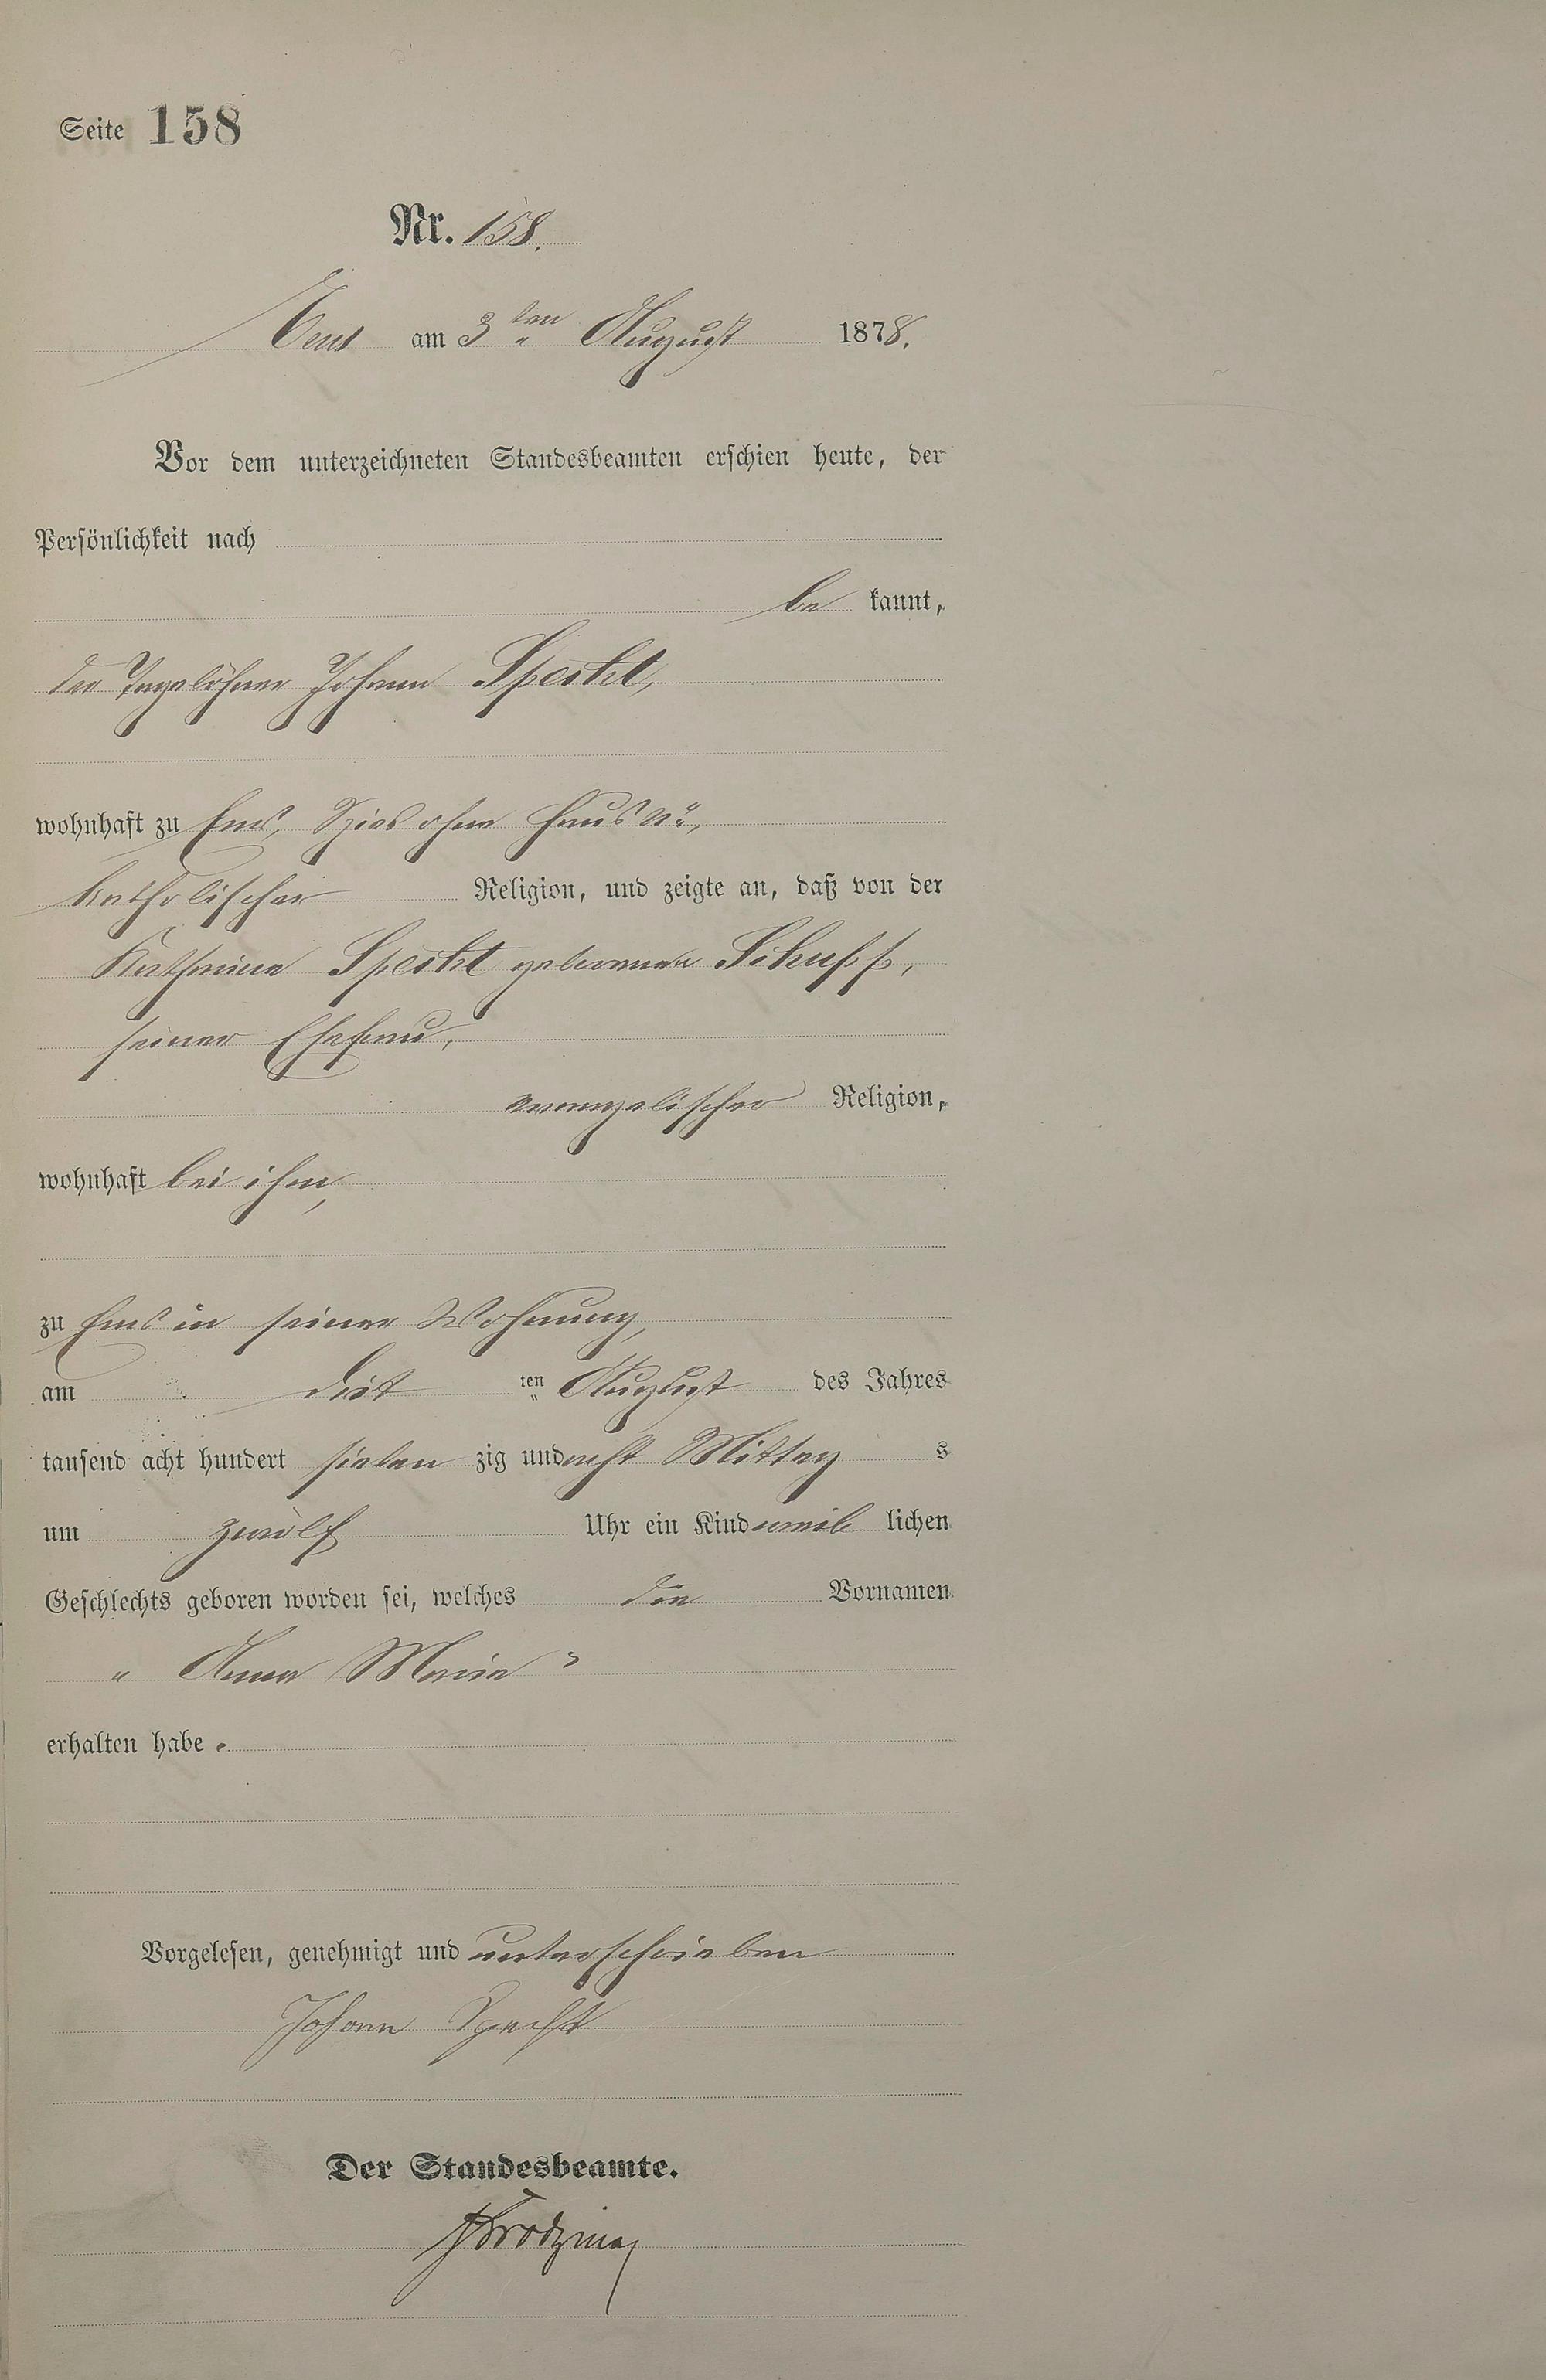 Seite 158
Nr. 158.
Ems am 3ten August 1878.
Vor dem unterzeichneten Standesbeamten erschien heute, der
Persönlichkeit nach
be kannt,
der Tagelöhner Johann Specht,
wohnhaft zu Ems, Spies ohne Haus No,
katholischer Religion, und zeigte an, daß von der
Katharina Specht geborenen Schupp,
seiner Ehefrau,
evangelischer Religion,
wohnhaft bei ihm,
zu Ems in seiner Wohnung,
am drit ten August des Jahres
tausend acht hundert sieben zig und acht Mittag s
um zwölf Uhr ein Kind weib lichen
Geschlechts geboren worden sei, welches die Vornamen
„ Anna Maria "
erhalten habe.
Vorgelesen, genehmigt und unterschrieben
Johann Specht
Der Standesbeamte.